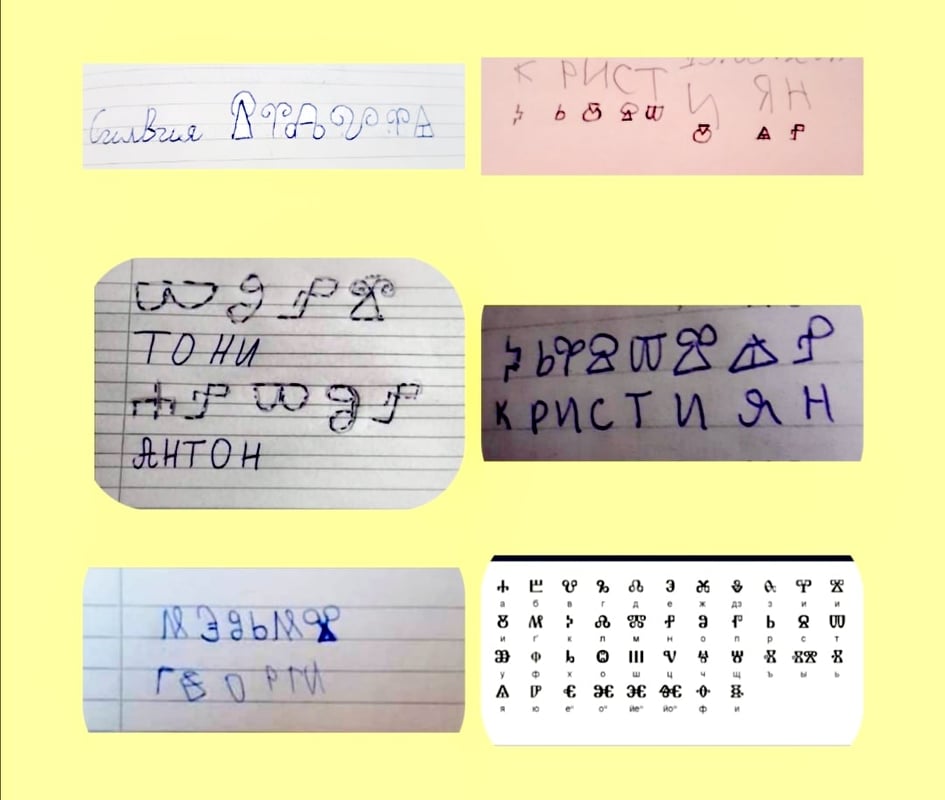 Силвия ⱄⰺⰾⰲⰺⱑ
К РИСТ И ЯН
ⰽ ⱃ ⰻ ⱄ ⱅ ⰻ ⱑ ⱀ
ⱅ ⱁ ⱀ ⰹ
ТОНИ
ⰰ ⱀ ⱅ ⱁ ⱀ
АНТОН
ⰽⱃⰺⱄⱅⰹⱑⱀ
КРИСТИЯН
ⰼⰵⱁⱃⰼⰹ
ГЕОРГИ
ⰰ ⰱ ⰲ ⰳ ⰴ ⰵ ⰶ ⰷ ⰸ ⰺ ⰹ
а б в г д е ж дз з и и
ⰻ ⰼ ⰽ ⰾ ⰿ ⱀ ⱁ ⱂ ⱃ ⱄ ⱅ
и ґ к л м н о п р с т
ⱆ ⱇ ⱈ ⱉ ⱎ ⱌ ⱍ ⱋ ⱏ ⱏⰹ ⱐ
у ф х о ш ц ч щ ъ ы ь
ⱑ ⱓ ⱔ ⱘ ⱗ ⱙ ⱚ ⱛ
я ю еⁿ оⁿ йеⁿ йоⁿ ф и